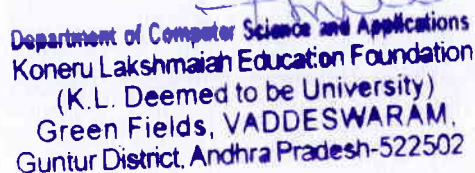 Department of Computer Science and Applications
Koneru Lakshmaiah Education Foundation
(K.L. Deemed to be University)
Green Fields, VADDESWARAM.
Guntur District, Andhra Pradesh-522502